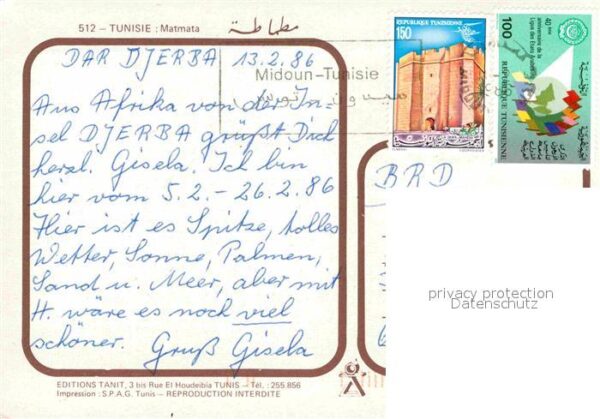 512 – TUNISIE : Matmata مطماطة
DAR DJERBA 13.2.86
Midoun-Tunisie
ميدون - تونس
REPUBLIQUE TUNISIENNE
150
100
40 ème
anniversaire de la
Ligue des Etats Arabes
REPUBLIQUE TUNISIENNE
Aus Afrika von der In-
sel DJERBA grüßt Dich
herzl. Gisela. Ich bin
hier vom 5.2. – 26.2.86
Hier ist es Spitze, tolles
Wetter, Sonne, Palmen,
Sand u. Meer, aber mit
H. wäre es noch viel
schöner. Gruß Gisela
BRD
privacy protection
Datenschutz
EDITIONS TANIT, 3 bis Rue El Houdeibia TUNIS – Tél. : 255.856
Impression : S.P.A.G. Tunis – REPRODUCTION INTERDITE